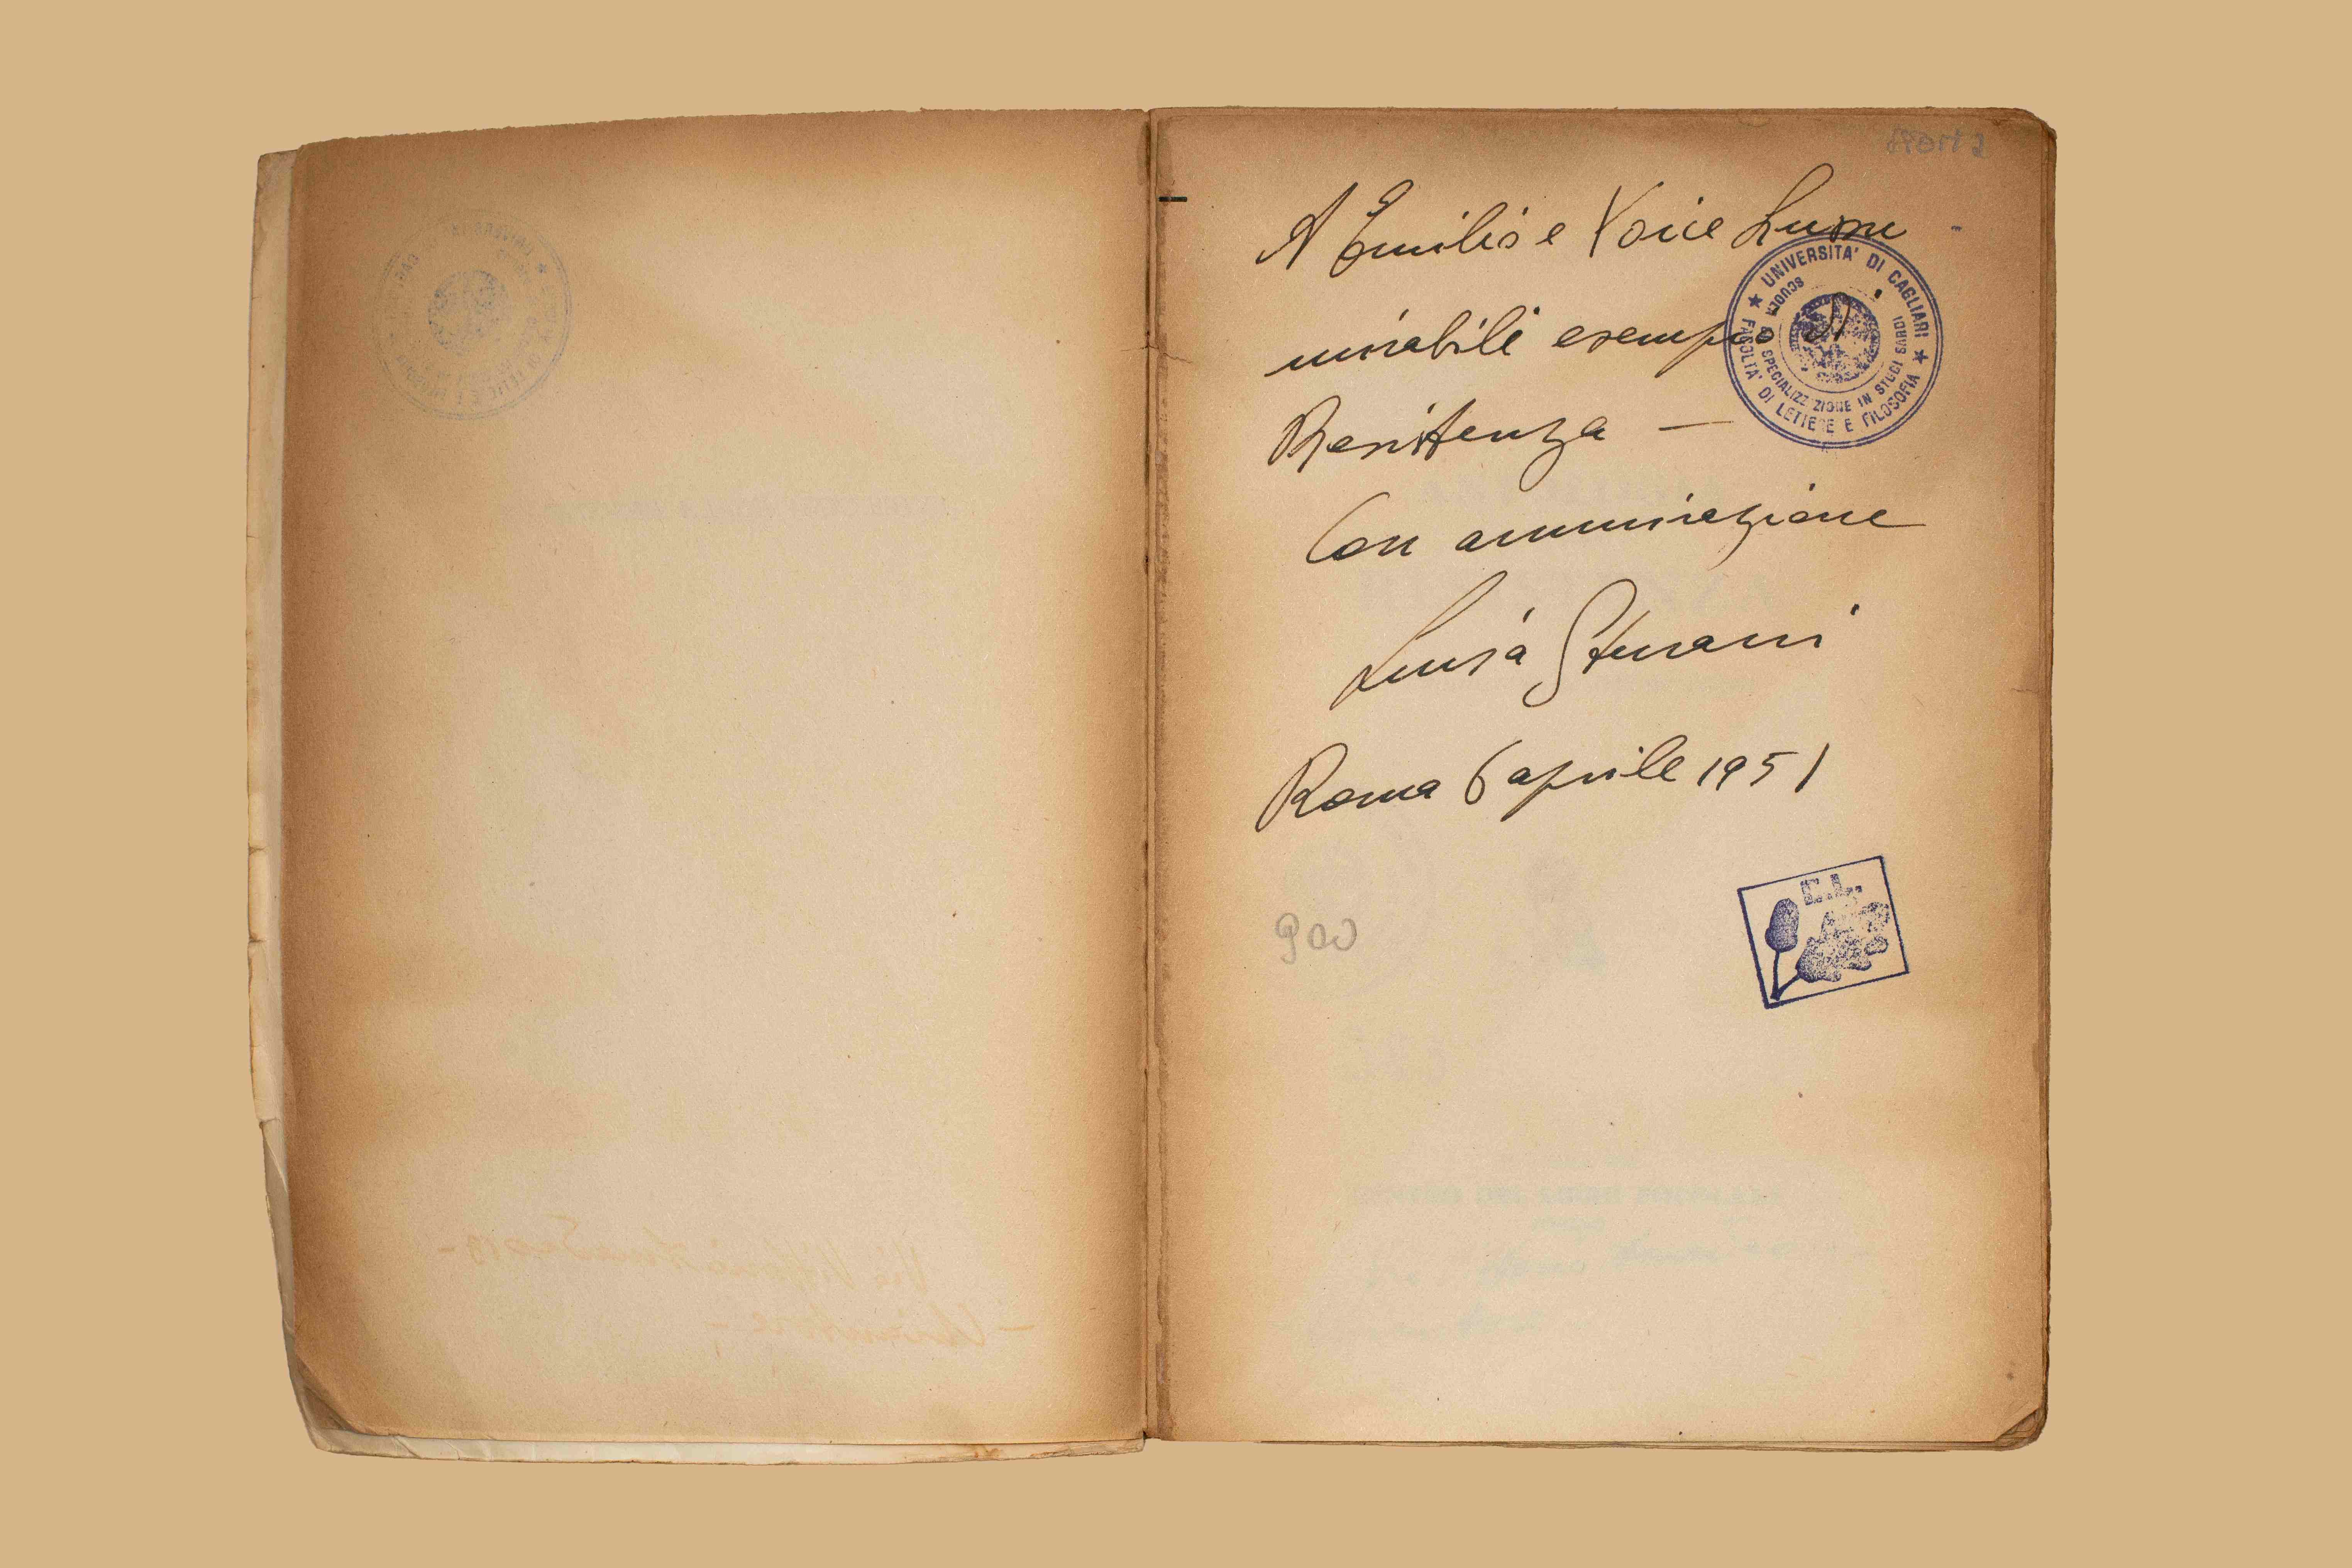 A Emilio e Yoice Lussu -
mirabili esempio di
Resistenza —
Con ammirazione
Luisa Sturani
Roma 6 aprile 1951
★ UNIVERSITA' DI CAGLIARI ★
FACOLTA' DI LETTERE E FILOSOFIA
SCUOLA DI SPECIALIZZAZIONE IN STUDI SARDI
900
E.L.